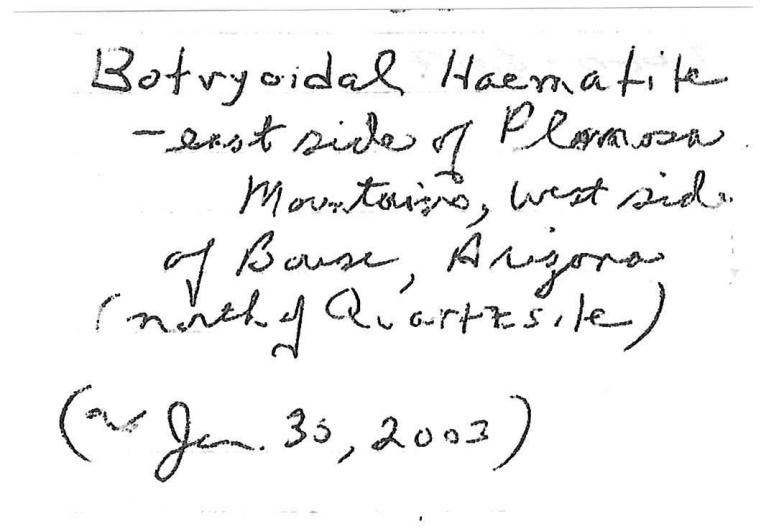 Botryoidal Haematite
- east side of Plomosa
Mountains, west side
of Bouse, Arizona
(north of Quartzsite)
(~ Jan. 30, 2003)